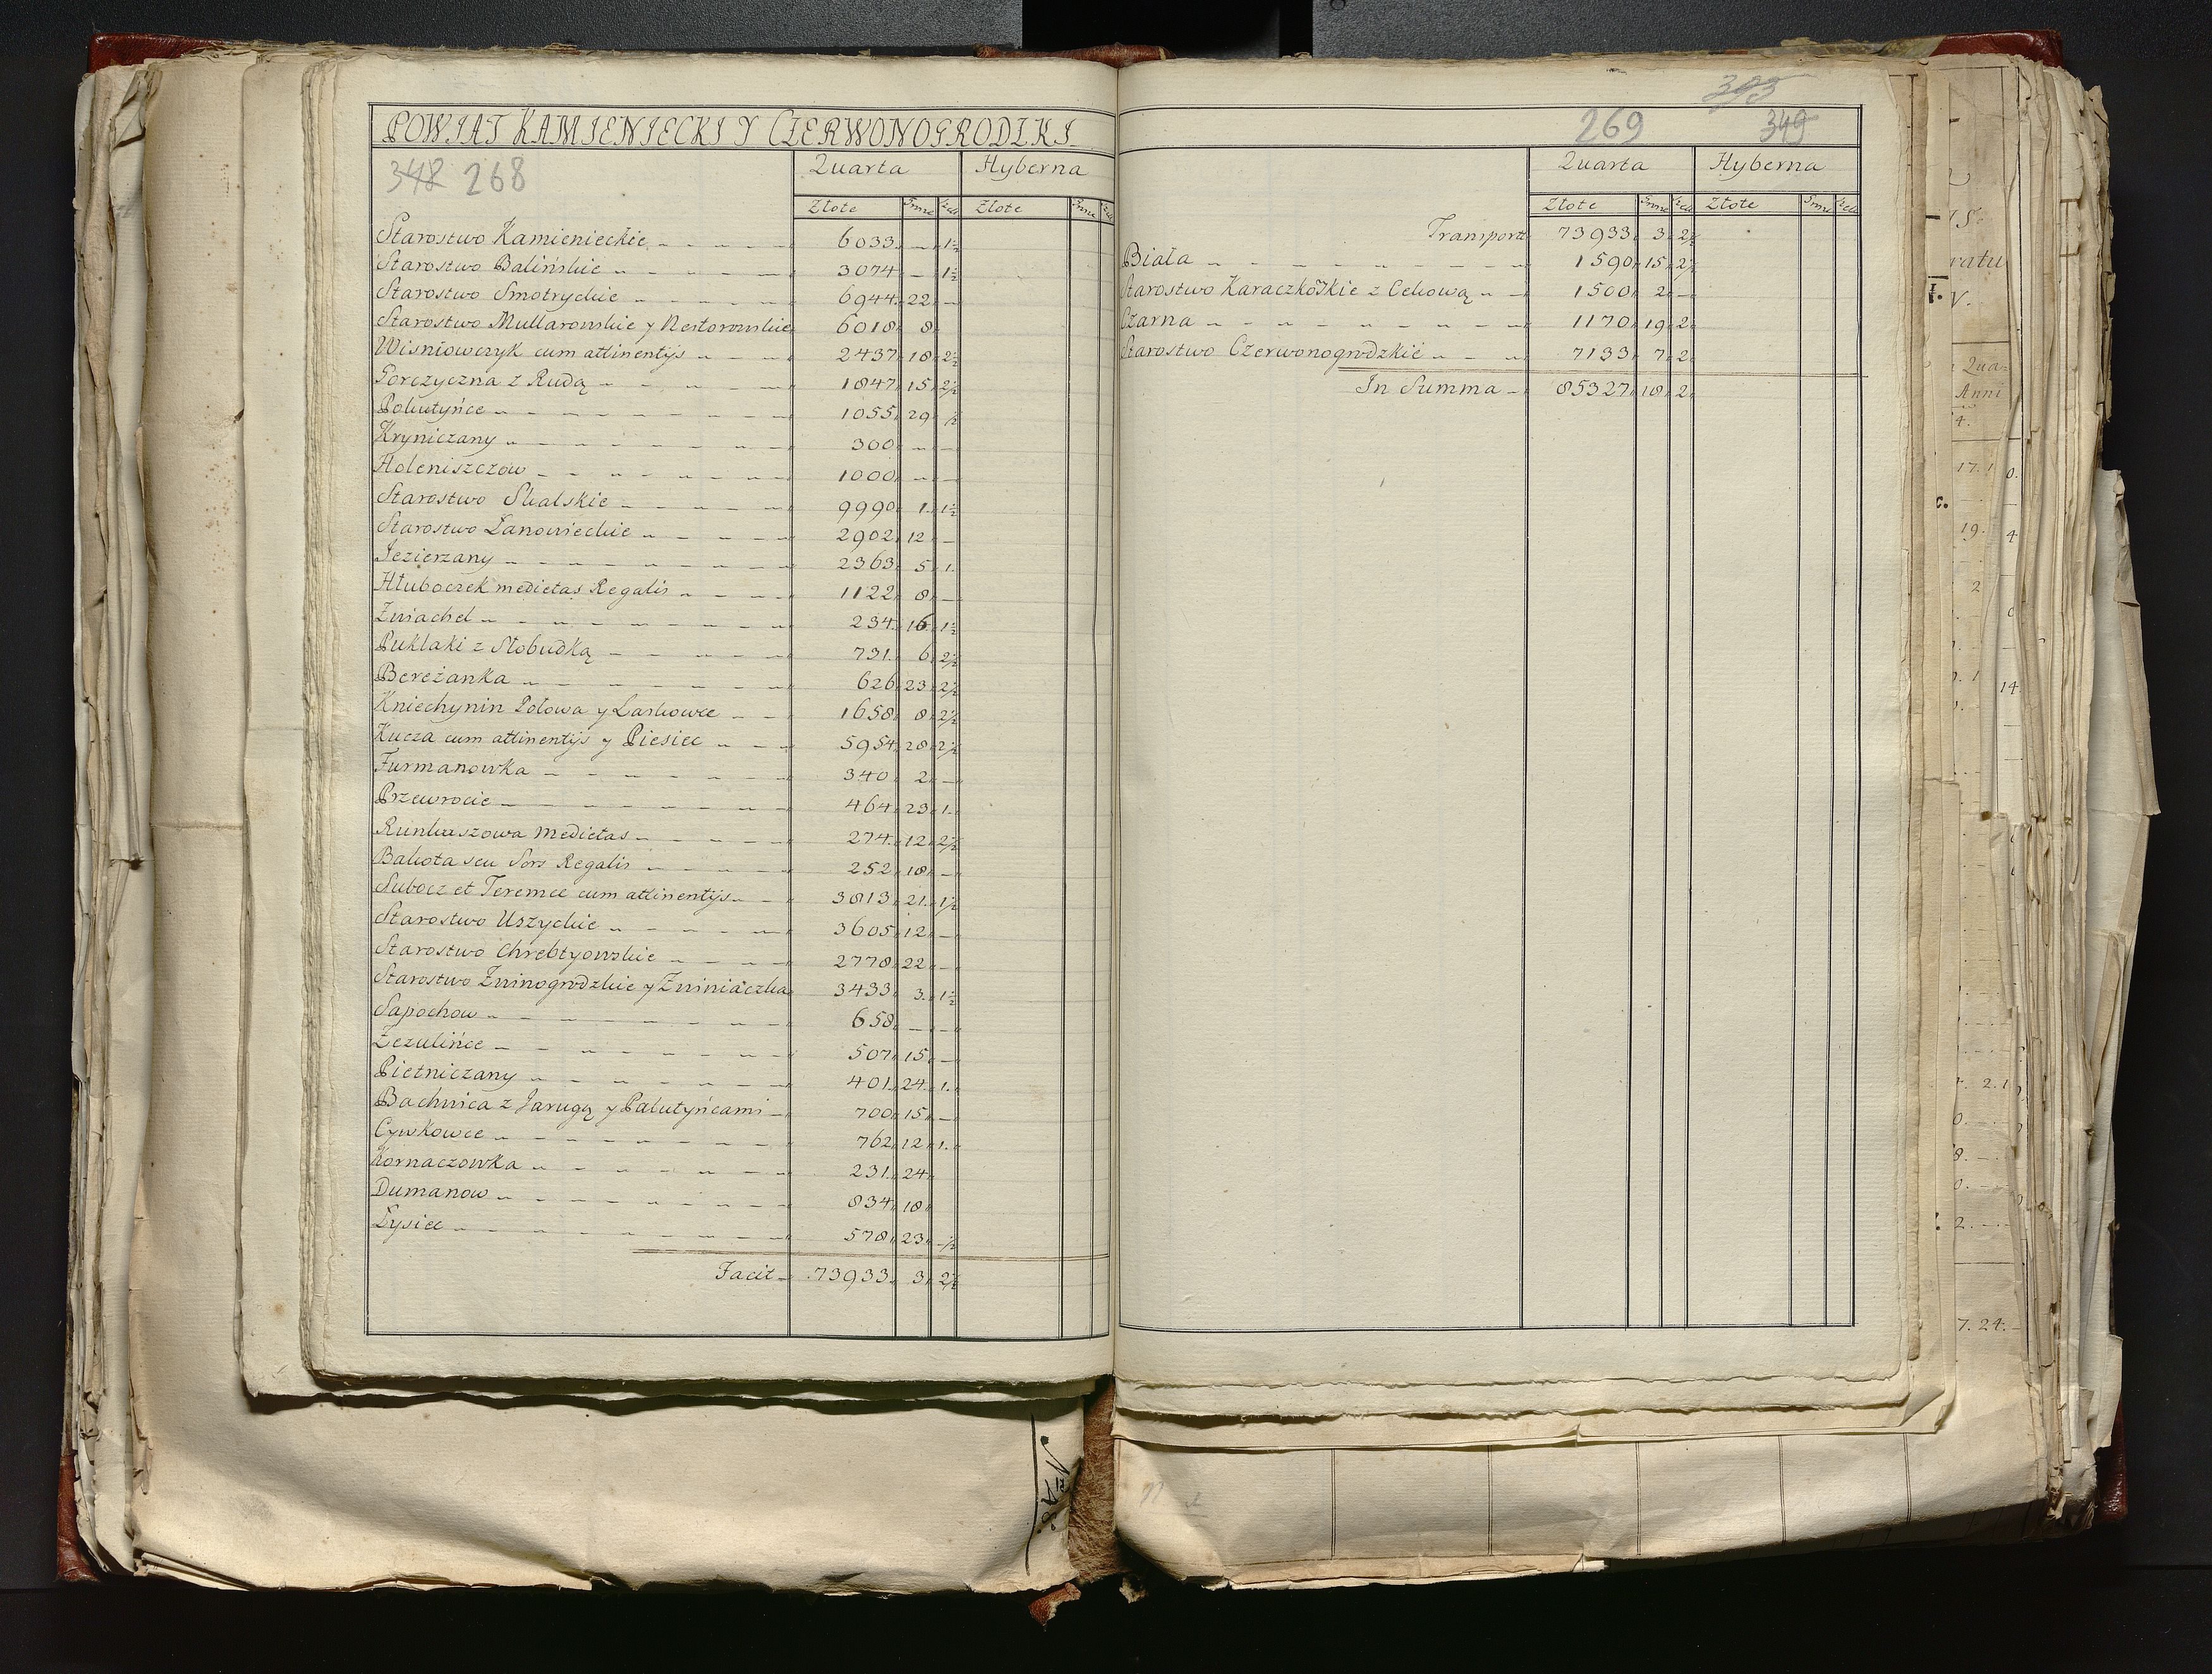 POWIAT KAMIENIECKI Y CZERWONOGRODZKI
348 268
Quarta Hyberna
Złote Złote
Starostwo Kamienieckie 6033 — 1½
Starostwo Balińskie 3074 — 1½
Starostwo Smotryckie 6944 22 —
Starostwo Mukarowskie y Nestorowskie 6018 8
Wisniowczyk cum attinentijs 2437 18 2½
Gorczyczna z Rudą 1847 15 2½
Pokutyńce 1055 29 ½
Kryniczany 300 — —
Holeniszczow 1000 — —
Starostwo Skalskie 9990 1 1½
Starostwo Łanowieckie 2902 12 —
Jezierzany 2363 5 1
Hłuboczek medietas Regalis 1122 8 —
Zwiachel 234 16 1½
Puklaki z Słobudką 731 6 2½
Bereżanka 626 23 2½
Kniechynin Połowa y Laskowce 1658 8 2½
Kucza cum attinentijs y Piesiec 5954 28 2½
Furmanowka 340 2 —
Przewrocie 464 23 1
Runkuszowa medietas 274 12 2½
Bakota seu Sors Regalis 252 18 —
Subocz et Teremce cum attinentijs 3813 21 1½
Starostwo Uszyckie 3605 12 —
Starostwo Chrebtyowskie 2778 22 —
Starostwo Zwinogrodzkie y Zwiniaczka 3433 3 1½
Sapochow 658 — —
Zezulińce 507 15 —
Pietniczany 401 24 1
Bachwica z Jarugą y Palutyńcami 700 15 —
Cywkowce 762 12 1
Kornaczowka 231 24
Dumanow 834 18
Łysiec 578 23 ½
Facit 73933 3 2½
393
269 349
Quarta Hyberna
Złote Złote
Transport 73933 3 2½
Biała 1590 15 2
Starostwo Karaczkowskie z Cekową 1500 2 —
Czarna 1170 19 2
Starostwo Czerwonogrodzkie 7133 7 2
In Summa 85327 18 2